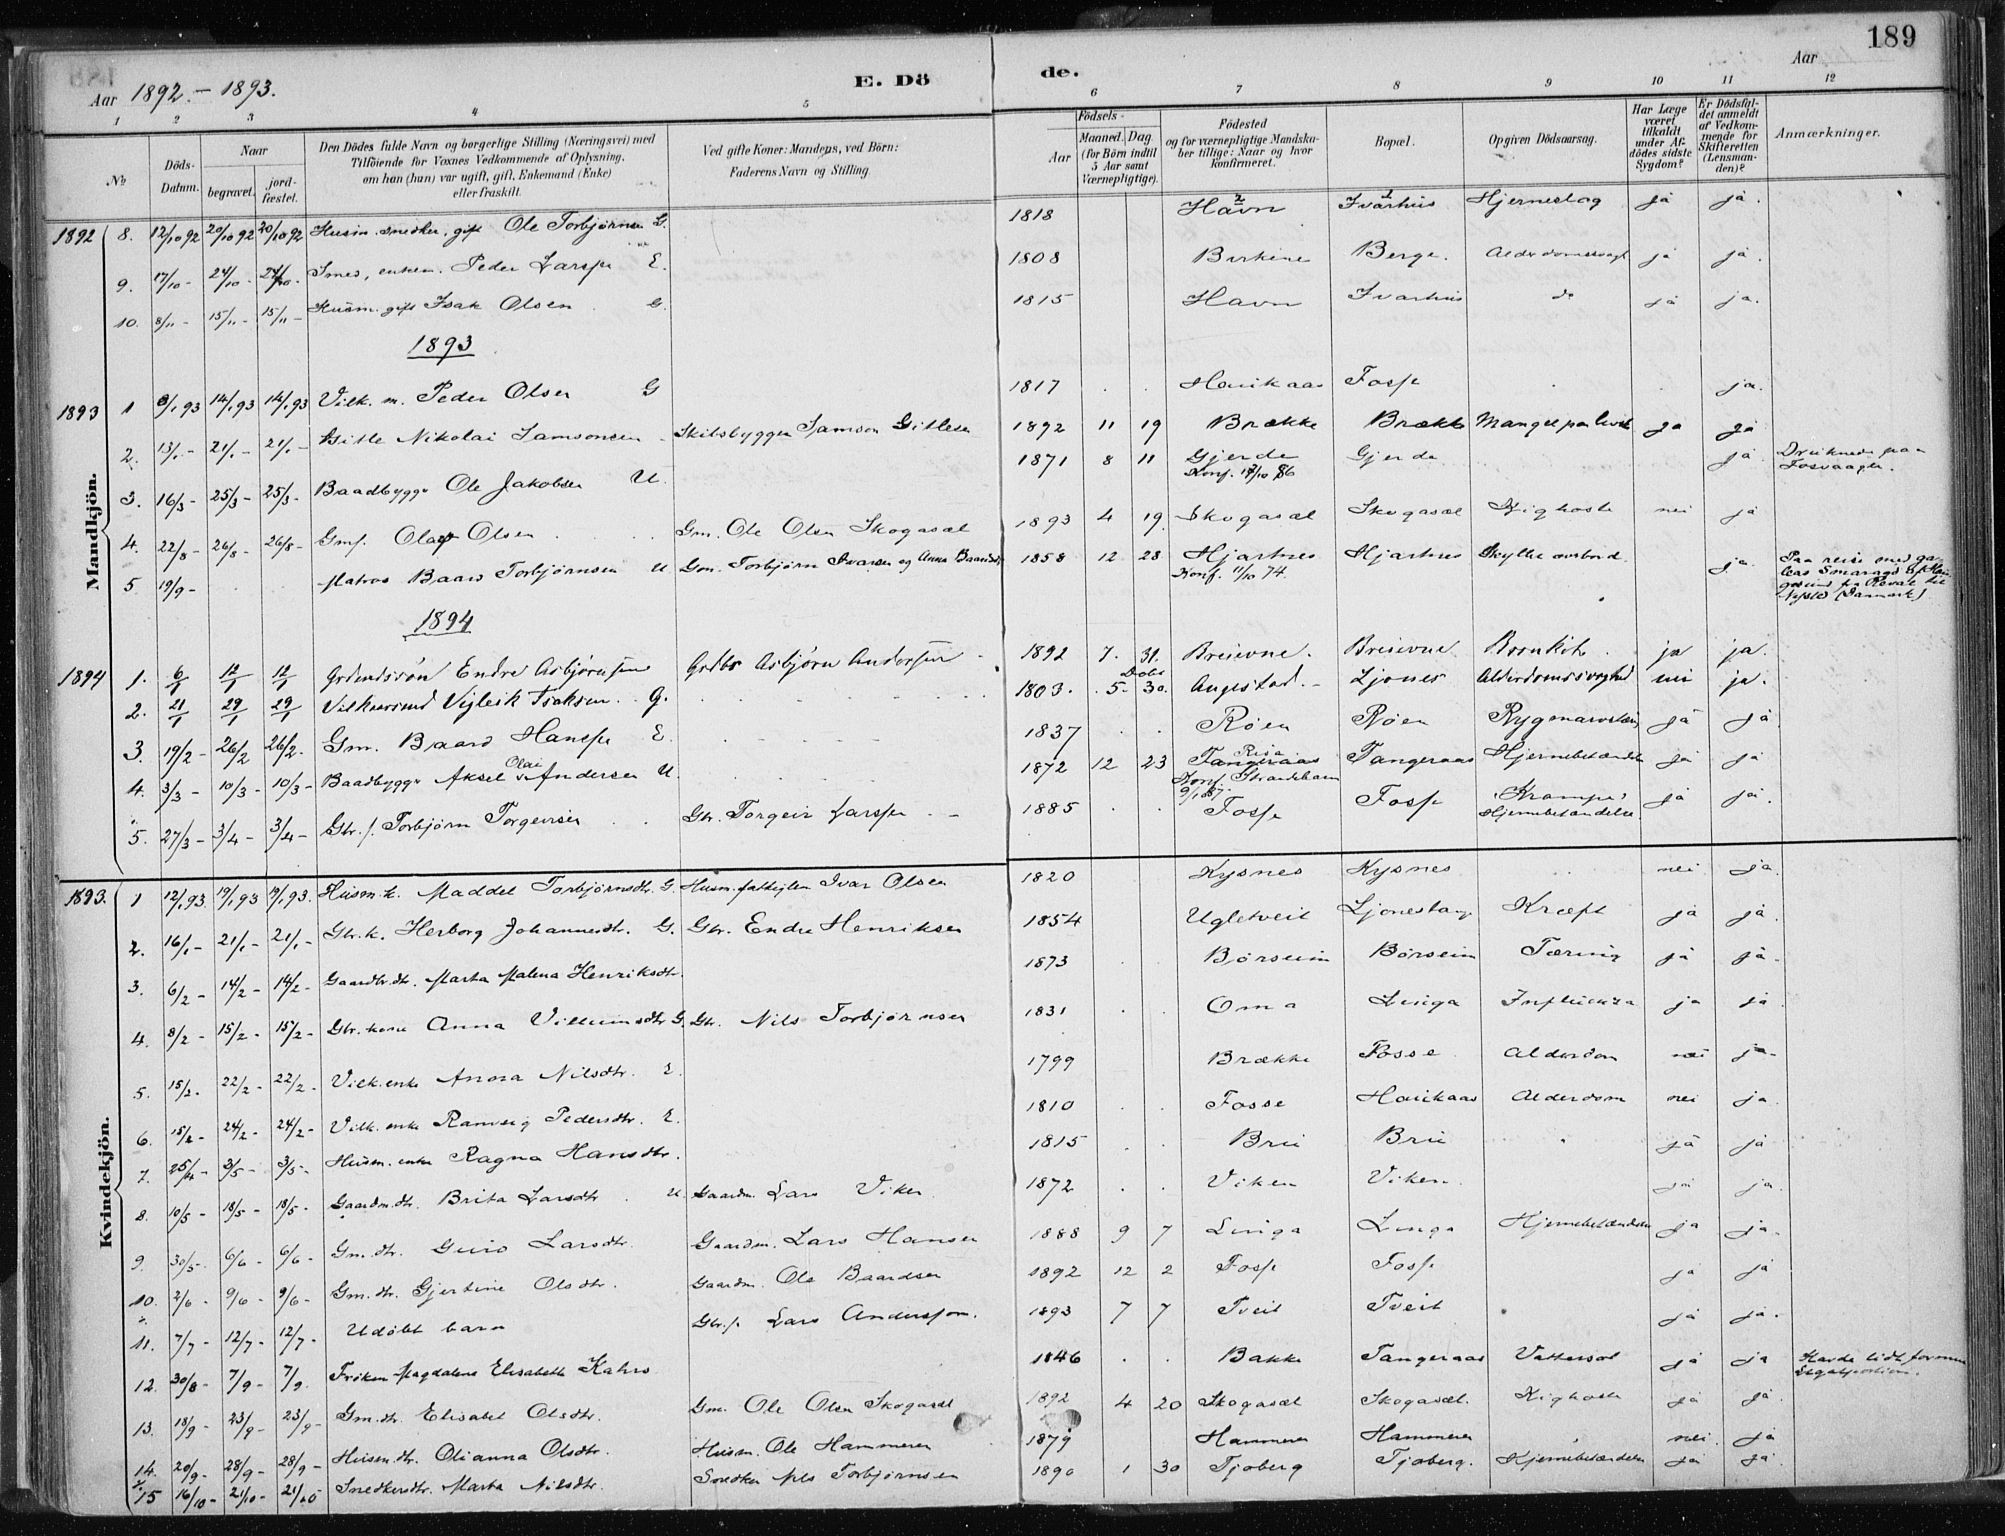 189
Aar 1892.-1893.
E. Dö
de.
Aar
1 2 3 4 5 6 7 8 9 10 11 12
№
Döds-Datum.
Naar
begravet.
jord-fæstet.
Den Dödes fulde Navn og borgerlige Stilling (Næringsvei) med
Tilföiende for Voxnes Vedkommende af Oplysning,
om han (hun) var ugift, gift, Enkemand (Enke)
eller fraskilt.
Ved gifte Koner: Mandens, ved Börn:
Faderens Navn og Stilling.
Födsels-
Aar
Maaned. Dag.
(for Börn indtil
5 Aar samt
Værnepligtige).
Födested
og for værnepligtige Mandska-
ber tillige: Naar og hvor
konfirmeret.
Bopæl.
Opgiven Dödsaarsag.
Har Læge
været
tilkaldt
under Af-
dödes sidste
Sygdom?
Er Dödsfal-
det anmeldt
af Vedkom-
mende for
Skifteretten
(Lensman-
den)?
Anmærkninger.
Mandkjön.
1892 8. 12/10 92 20/10 92 20/10 92 Husm. snedker, gift Ole Torbjørnsen G. 1818 Havn Ivarhus Hjerneslag ja ja.
9. 17/10 - 24/10 - 24/10 - Smed, enkem. Peder Larsen E. 1808 Birkine Berge. Alderdomssvagh ja ja.
10. 8/11 - 15/11 - 15/11 - Husm. gift Isak Olsen G. 1815 Havn Ivarhus do ja ja.
1893
1893 1 8/1 93 14/1 93 14/1 93 Vilk. m. Peder Olsen G 1817 Haukaas Fosse ja.
2. 13/1 - 21/1 - 21/1 - Gitle Nikolai Samsonsen Skibsbygger Samson Gitlesen 1892 11 19 Brække Brække Mangel paa livsk ja ja
3. 16/3 - 25/3 - 25/3 - Baadbygger Ole Jakobsen U. 1871 8 11 Gjerde Konf. 17/10 86 Gjerde ja Druknede paa Fosvaagen.
4. 22/8 - 26/8 - 26/8 - Gmf. Olaf Olsen Gm. Ole Olsen Skogasæl 1893 4 19 Skogasæl Skogasæl Kighoste nei ja
5 19/9 - Matros Baard Torbjørnsen U Gm. Torbjørn Ivarsen og Anna Baardsdtr 1858 12 28 Hjartnes Konf. 11/10 74. Hjartnes Skyllet overbord. ja. Paa reise med galeas Smaragd af Haugesund fra Reval til (Danmark)
1894
1894 1. 6/1 12/1 12/1 Grdmdssøn Endre Asbjørnsen Grdbr Asbjørn Andersen 1892 7. 31. Breievne. Breievne Bronkit. ja ja.
2. 21/1 29/1 29/1 Vilkaarsmd Vigleik Isaksen G. 1803. 5. Døbt 30. Augestad. Ljones Alderdomssvaghed nei ja.
3. 19/2 - 26/2 26/2. Gm. Baard Hansen E 1837 Røen Røen Rygmarvstæring ja ja
4. 3/3 - 10/3 - 10/3 - Baadbygger Aksel Olai Andersen U. 1872 12 23 Tangeraas Konf. Strandebarm Tangeraas Hjernebetændelse ja ja
5. 27/3 - 3/4 - 3/4 - Gbr. s. Torbjørn Torgeirsen Gbr. Torgeir Larsen 1885 Fosse Fosse "Krampe" Hjernebetændelse ja ja.
Kvindekjön.
1893. 1 12/1 93. 19/1 93 19/1 93. Husm. k. Maddel Torbjørnsdtr. G. Husm. fattiglem Ivar Olsen 1820 Kysnes Kysnes nei ja
2. 16/1 - 21/1 - 21/1 - Gbr. k. Herborg Johannesdtr. G. Gbr. Endre Henriksen 1854 Ugletveit Ljonestang Kræft ja ja.
3. 6/2 - 14/2 - 14/2 - Gaardbr. dtr. Marta Malena Henriksdtr. 1873 Børseim Børseim Tæring ja ja.
4. 8/2 - 15/2 - 15/2 - Gbr. kone Anna Villumsdtr G. Gbr. Nils Torbjørnsen 1831 Oma Linga Influenza ja ja
5. 15/2. 22/2 - 22/2 - Vilk. enke Anna Nilsdtr. E. 1799 Brække Fosse Alderdom nei ja.
6. 15/2 - 24/2 - 24/2 - Vilk. enke Ranveig Pedersdtr. E. 1810 Fosse Haukaas Alderdom nei ja.
7. 25/4 - 3/5 - 3/5 - Husm. enke Ragna Hansdtr. 1815 Brii Brii ja ja
8. 10/5 - 18/5 - 18/5 - Gaardm. dtr. Brita Larsdtr U. Gaardm. Lars Viken 1872 Viken Viken ja ja.
9. 30/5. 6/6 - 6/6 - Gm. dtr. Guro Larsdtr. Gaardm. Lars Hansen 1888 9 7 Linga Linga Hjernebetændelse ja ja.
10. 2/6 - 9/6 - 9/6 - Gm. dtr. Gjertine Olsdtr. Gaardm. Ole Baardsen 1892 12 2 Fosse Fosse ja ja
11. 7/7 - 12/7 - 12/7 - Udøbt barn Gbr. s. Lars Anderssøn. 1893 7 7 Tveit Tveit ja ja.
12. 30/8 - 7/9 - 7/9. Frøken Magdalena Elisabeth Kahrs 1846 Bakke Tangeraas Vattersot ja ja
13. 18/9 - 23/9 - 23/9 - Gm. dtr. Elisabet Olsdtr. Gm. Ole Olsen Skogasæl 1892 4 20 Skogasæl Skogasæl. Kighoste ja ja.
14. 20/9 - 28/9 - 28/9 - Husm. dtr. Olianna Olsdtr. Husm. Ole Hammeren 1879 Hammeren Hammeren nei. ja
15 16/10 - 21/10 - 21/10 Snedkersdtr. Marta Nilsdtr. Snedker Nils Torbjørnsen 1890 1 30 Tjoberg Tjoberg. Hjernebetændelse ja ja.